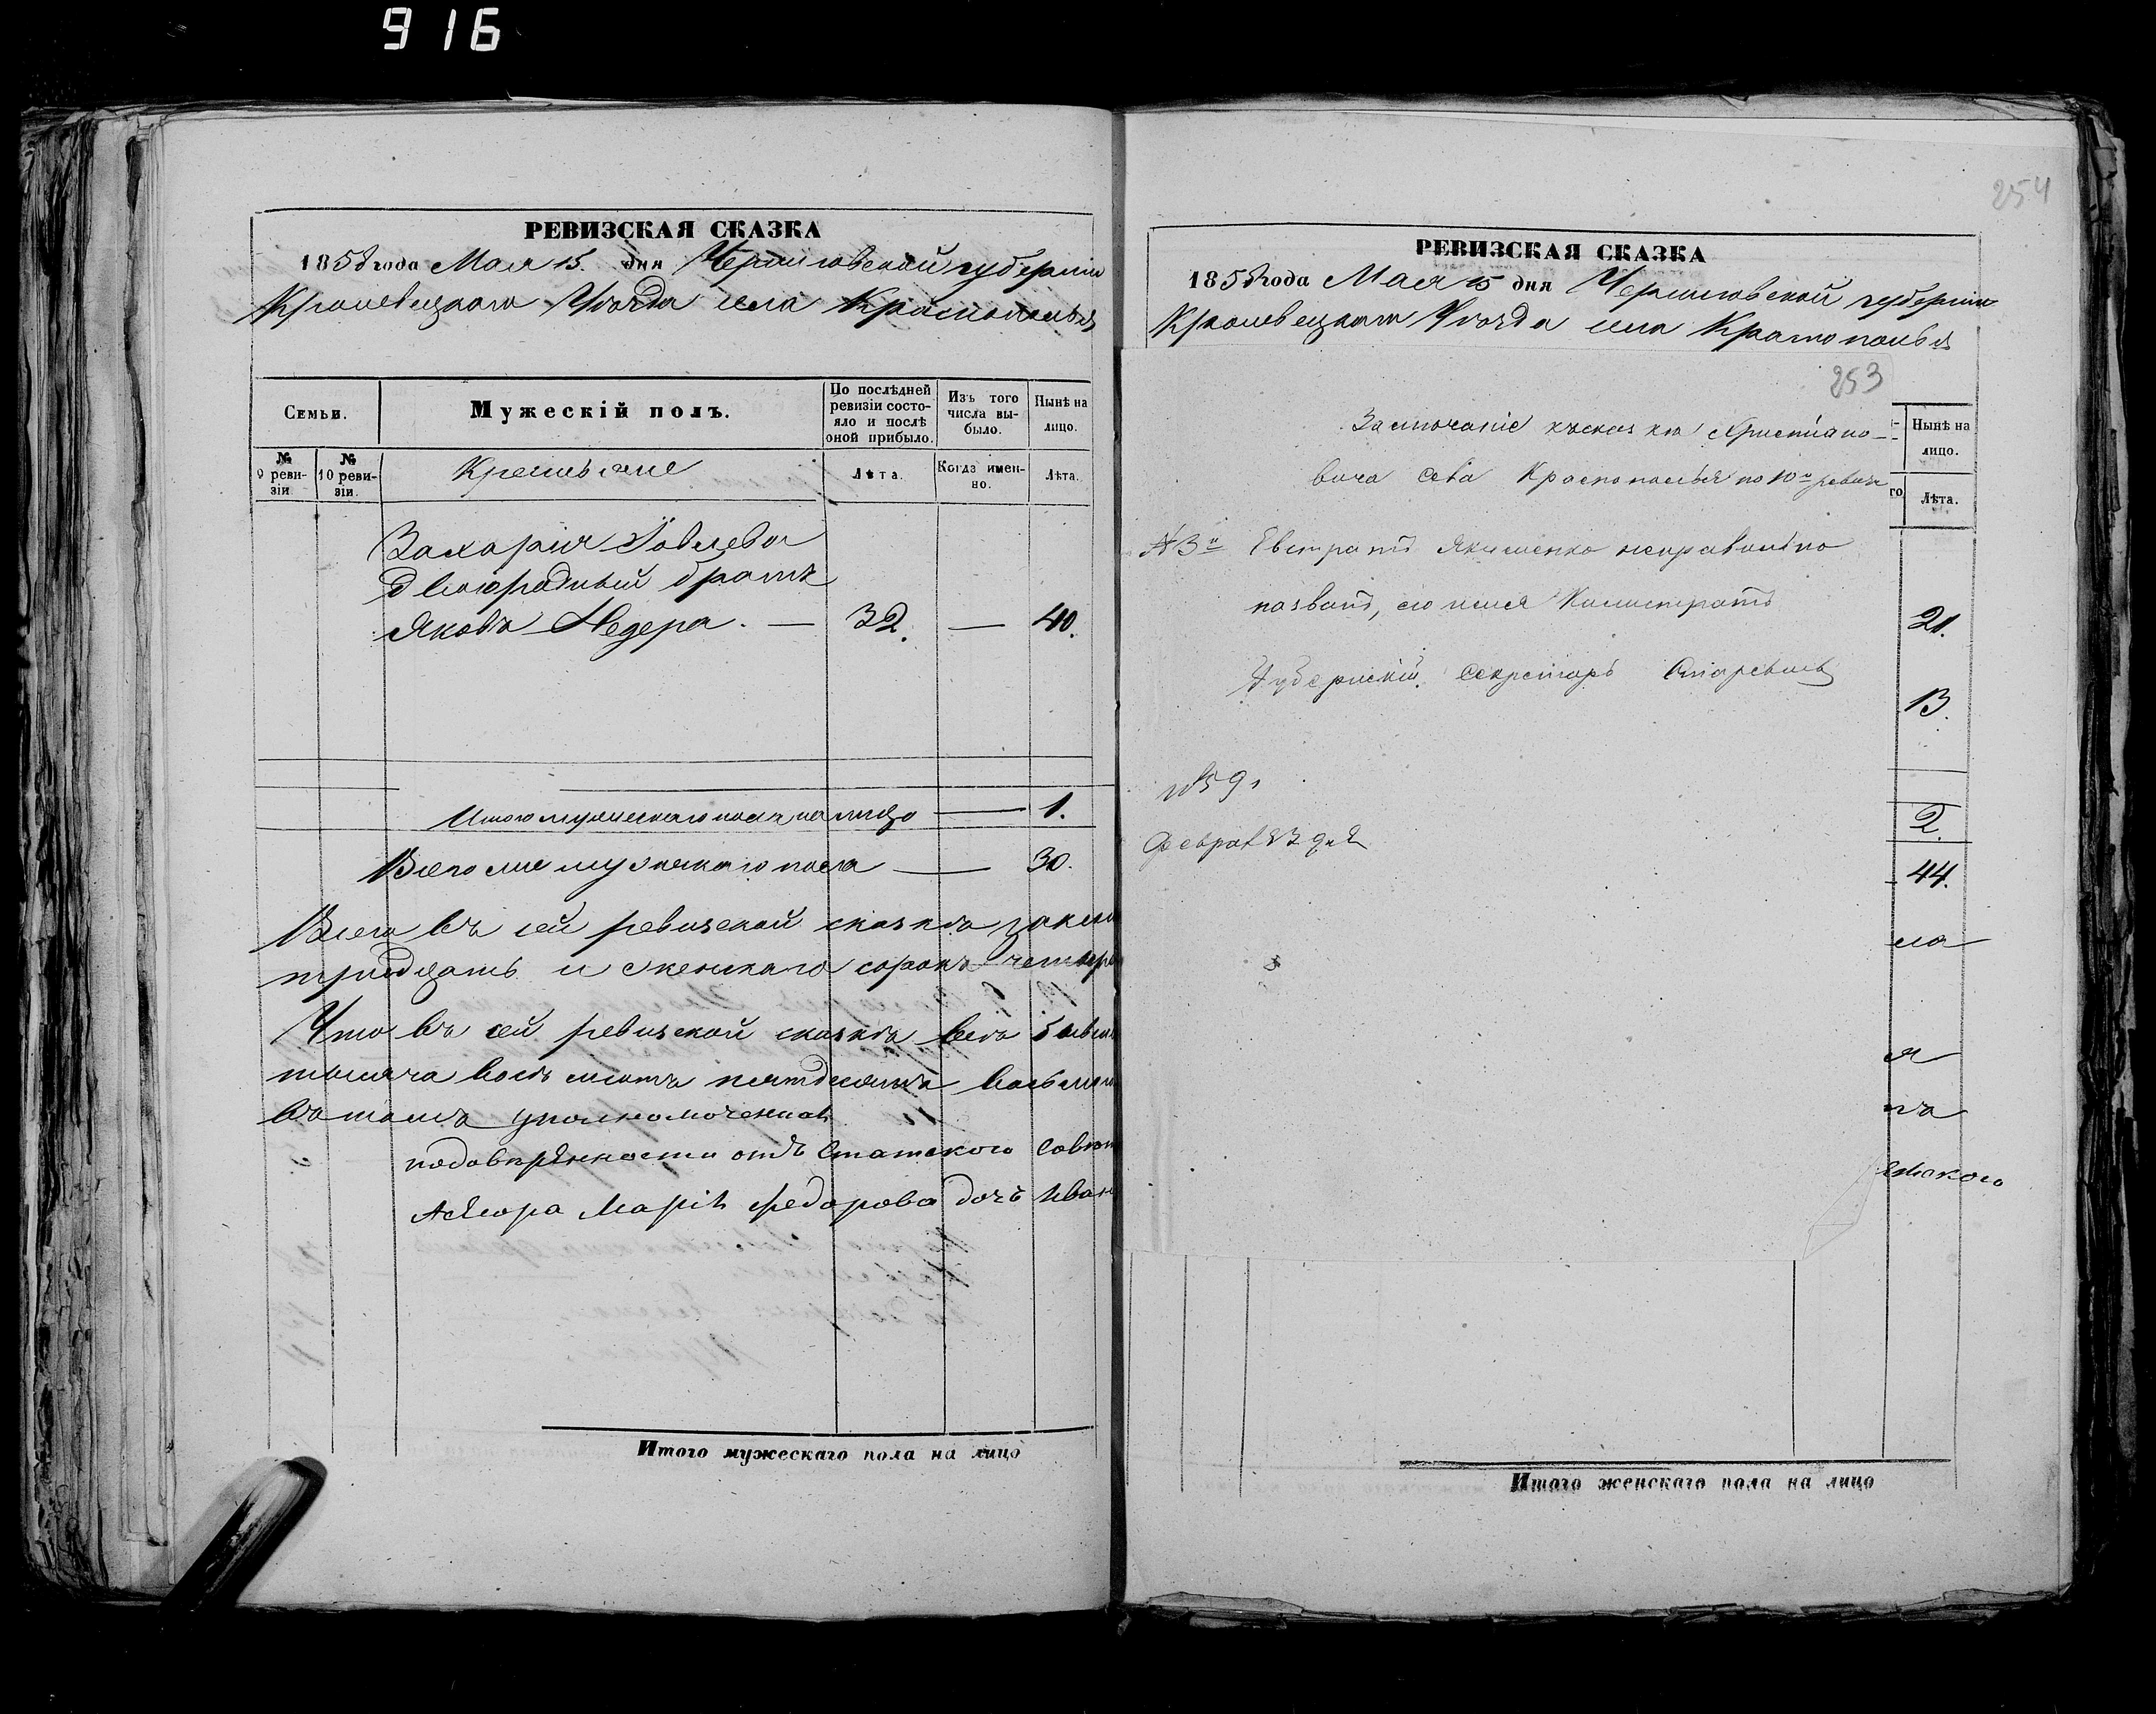 916
РЕВИЗСКАЯ СКАЗКА
1858 года Мая 15. дня Черниговской губернии
Кролевецкаго Уѣзда села Краснополья
Семьи.
Мужескій полъ.
По послѣдней ревизіи состояло и послѣ оной прибыло.
Изъ того числа выбыло.
Нынѣ на лицо.
№ 9 ревизіи
№ 10 ревизіи.
Крестьяне
Лѣта.
Когда именно.
Лѣта.
Захарія Іовлева
двоюродный братъ
Яковъ Недера. — 32. — 40.
Итого мужескаго пола на лицо — 1.
Всего мужескаго пола — 30.
Всего въ сей ревизской сказкѣ
тридцать и женскаго сорокъ
Что въ сей ревизской сказкѣ всѣ
тысяча восемьсотъ пятдесятъ
въ томъ
отъ Статского
Маріи Федорова дочь
Итого мужескаго пола на лицо
254
РЕВИЗСКАЯ СКАЗКА
1858 года Мая 15 дня Черниговской губерніи
Кролевецкаго Уѣзда села Краснополья
253
къ сказкѣ Христіано-
вича села Краснополья по 10й ревизіи
Нынѣ на лицо.
го
Лѣта.
№ 3й Евстратъ Якименко неправильно
названъ, его имя Калистратъ
21.
Губернскій Секретарь
13.
1859
2.
Февраля 27 дня
44.
ла
я
тъ
Итого женскаго пола на лицо